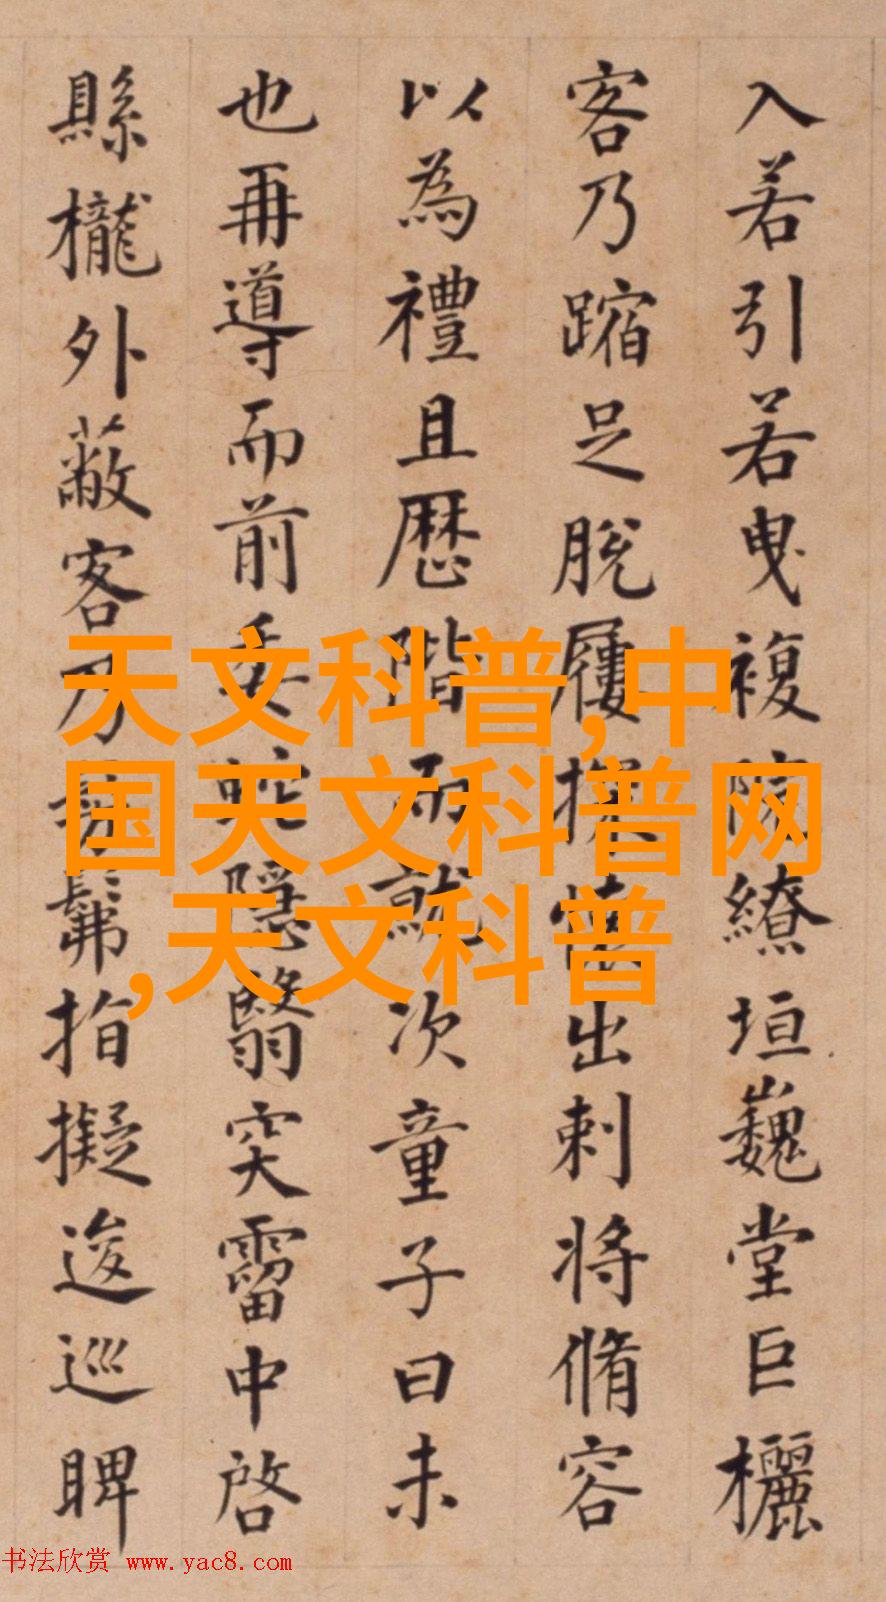 入若引若曳複院繚垣巍堂巨欐
客乃蹜足脫屨探懷出刺將脩容
以為禮且歷階而就次童子曰未
也再導而前委蛇隱翳突霤中啓
縣櫳外蔽客乃髣髴指擬逡巡睥
天文科普,中
国天文科普网
,天文科普
书法欣赏 www.yac8.com